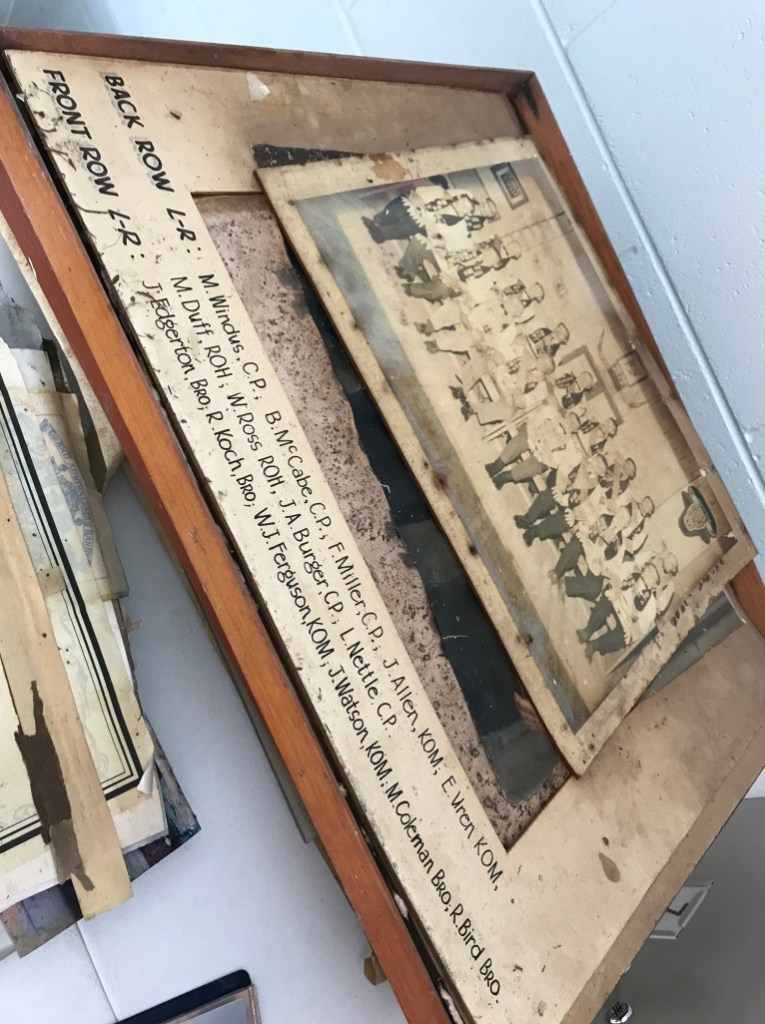 BACK ROW L-R: M. Windus, C.P.; B. McCabe, C.P.; F Miller, C.P.; J. Allen, KOM; E. Uren, KOM,
M. Duff, ROH; W. Ross ROH, J.A. Burger, CP; L. Nettle. C.P.
FRONT ROW L-R: J. Edgerton, Bro; R. Koch, Bro; W.J. Ferguson, KOM; J. Watson, KOM; M. Coleman Bro; R. Bird Bro.